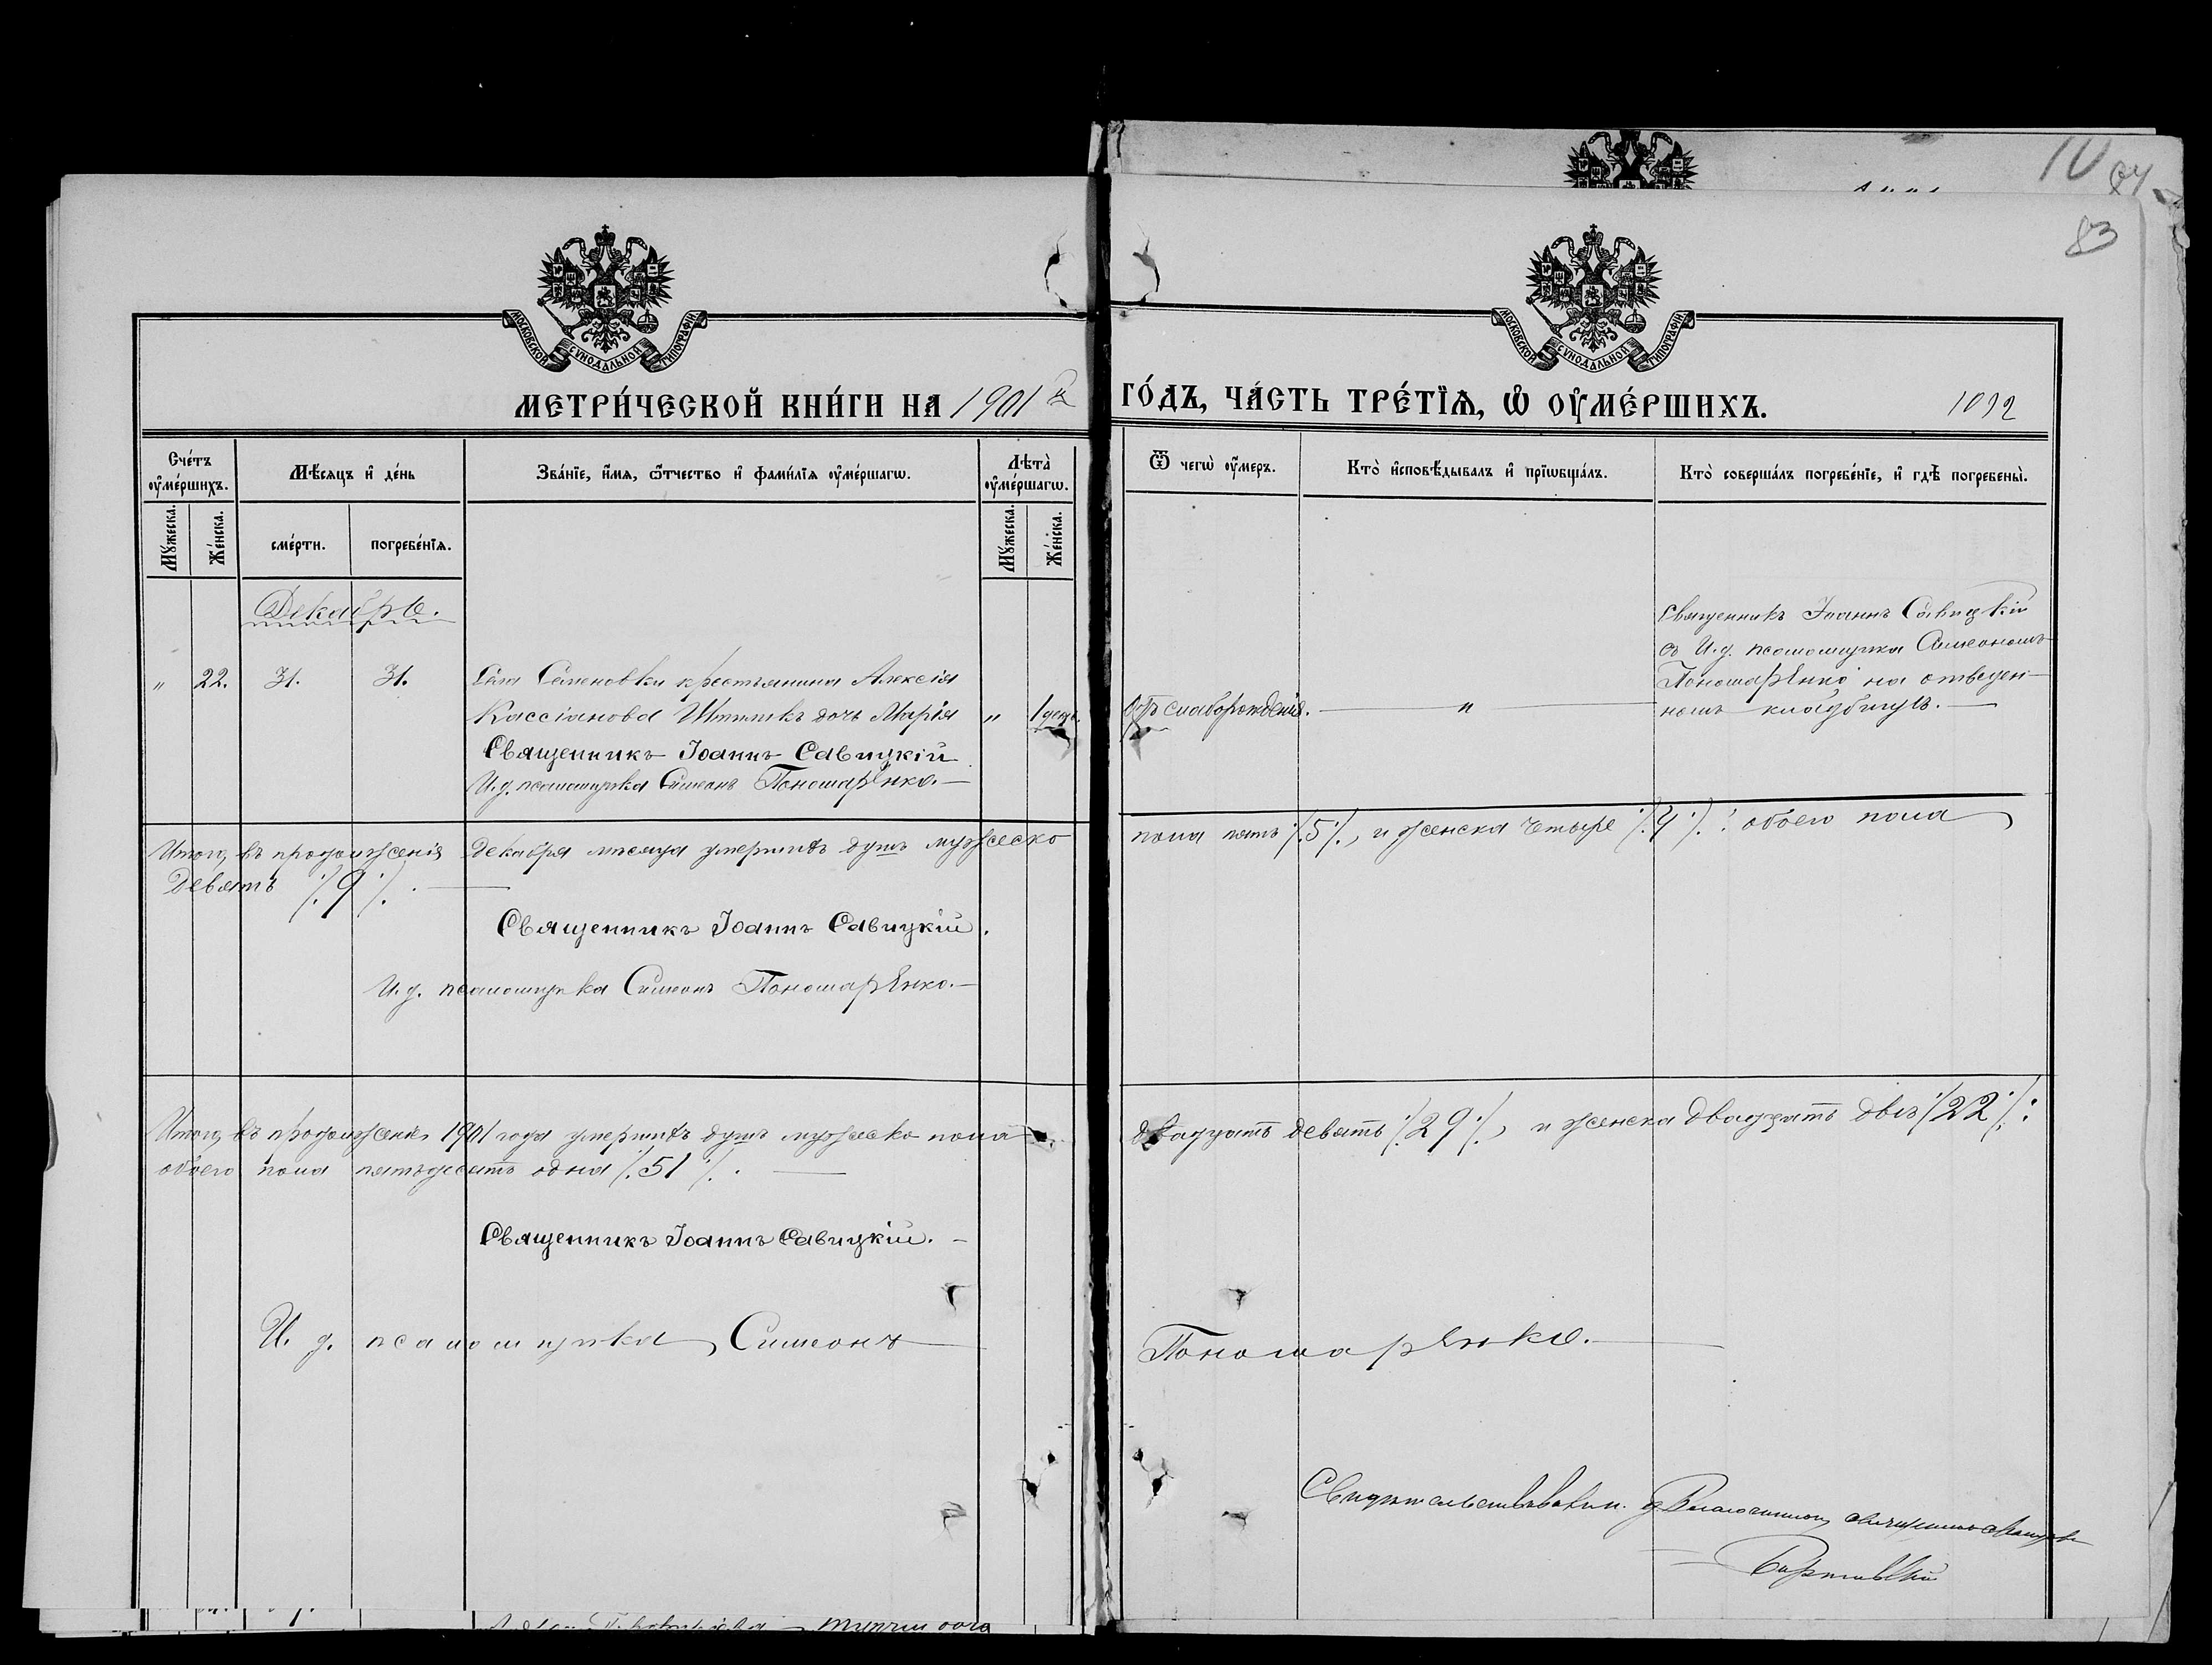 10 84
83
МОСКОВСКОЙ СѴНОДАЛЬНОЙ ТИПОГРАФІИ
МОСКОВСКОЙ СѴНОДАЛЬНОЙ ТИПОГРАФІИ
МЕТРИ́ЧЕСКОЙ КНИ́ГИ НА 1901 й ГО́ДЪ, ЧА́СТЬ ТРЕ́ТЇѦ, Ѡ ОУ҆МЕ́РШИХЪ.
Сче́тъ оу҆ме́ршихъ.
Мѣ́сяцъ и҆ де́нь
Зва́нїе, и҆́мя, ѻ҆́тчество и҆ фами́лїя оу҆ме́ршагѡ.
Лѣта̀ оу҆ме́ршагѡ.
Ѿ чегѡ̀ оу҆́меръ.
Кто̀ и҆сповѣ́дывалъ и҆ прїѡбща́лъ.
Кто̀ соверша́лъ погребе́нїе, и҆ гдѣ̀ погребены̀.
Мꙋ́жеска.
Же́нска.
сме́рти.
погребе́нїѧ.
Мꙋ́жеска.
Же́нска.
Декабрь.
" 22. 31. 31. Села Семеновки крестьянина Алексія
Кассіанова дочь Марія " 1 день.
Священникъ Іоаннъ Савицкій
И.д. псаломщика Симеонъ Пономарѣнко.—
Отъ слаборожденія. — " —
Священникъ Іоаннъ Савицкій
съ И.д. псаломщика Симеономъ
Пономарѣнко на отведен-
номъ кладбищѣ.—
Итого, въ продолженіе Декабря мѣсяца умершихъ душъ мужеско пола пять ·/.5·/., и женска четыре ·/.4·/.: обоего пола
девять ·/.9·/.—
Священникъ Іоаннъ Савицкій.
И.д. псаломщика Симеонъ Пономарѣнко.—
Итого, въ продолженіе 1901 года умершихъ душъ мужеско пола двадцать девять ·/.29·/., и женска двадцать двѣ ·/.22·/.:
обоего пола пятьдесятъ одна ·/.51·/.—
Священникъ Іоаннъ Савицкій.—
И. д. псаломщика Симеонъ Пономарѣнко.—